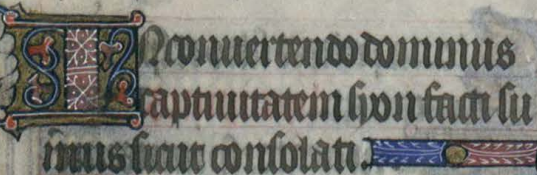 In conuertendo dominus
captiuitatem syon facti su
mus sicut consolati.